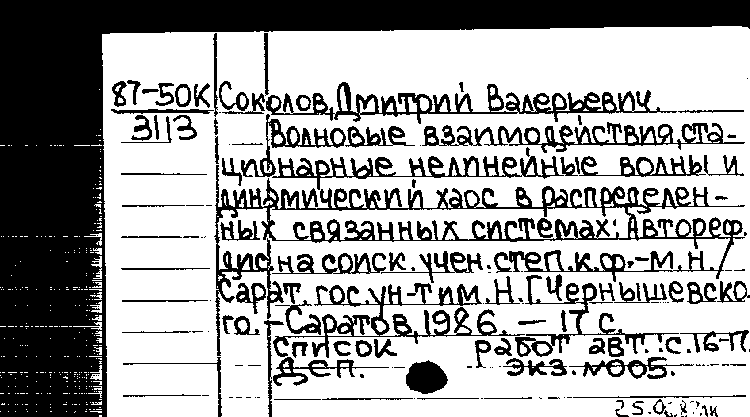 87-50К Соколов, Дмитрий Валерьевич.
3113 Волновые взаимодействия, ста-
ционарные нелинейные волны и
динамический хаос в распределен-
ных связанных системах: Автореф.
дис. на соиск. учен. степ. к. ф.-м. н. /
Сарат. гос. ун-т им. Н. Г. Чернышевско-
го. - Саратов, 1986. — 17 с.
Список работ авт.: с. 16-17
ДСП. Экз. №005.